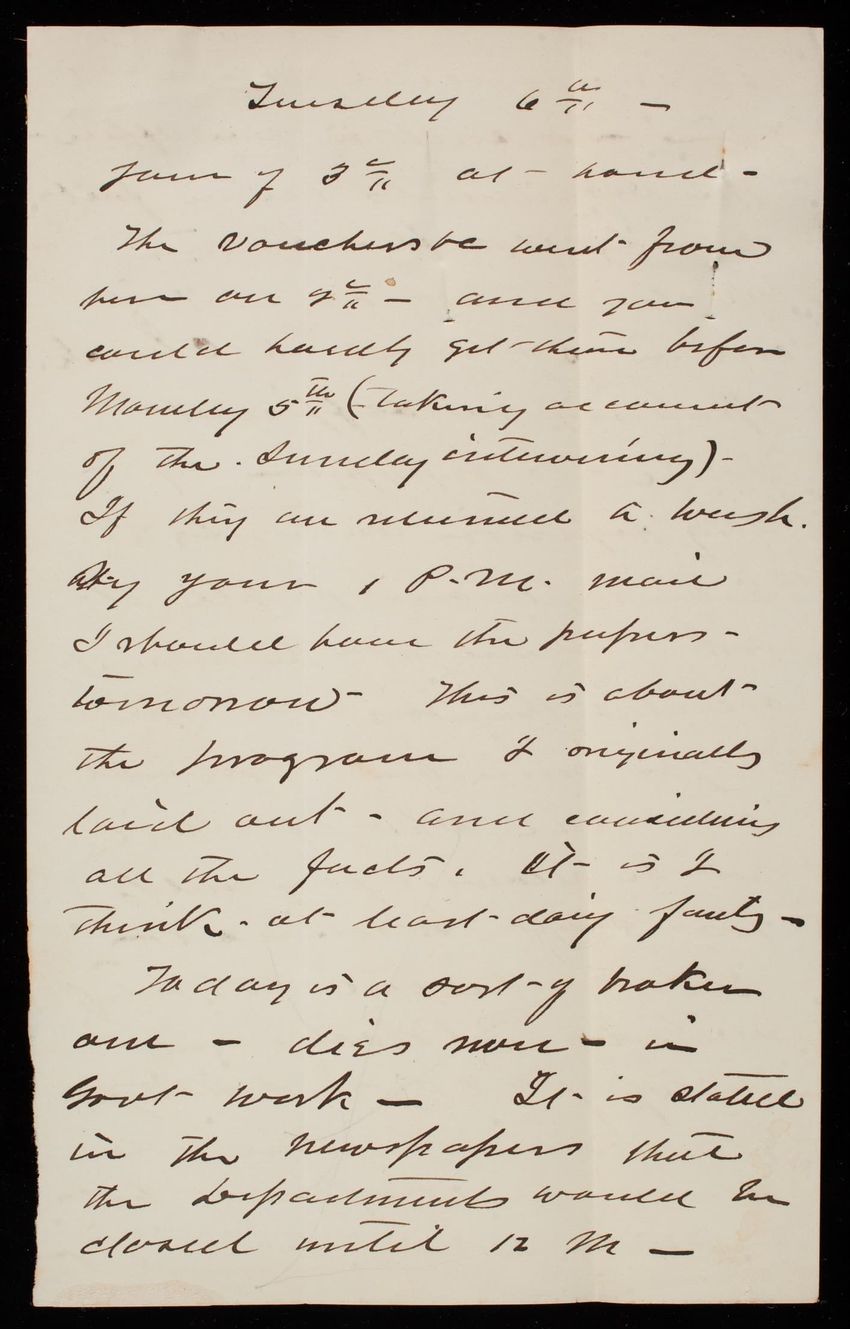 Tuesday 6th —
Yours of 3d at hand -
The vouchers &c went from
here on 2d - and you
could hardly get them before
Monday 5th (taking account
of the Sunday intervening) -
If they are returned to Wash.
by your 1 P.M. mail
I should have the papers -
tomorrow - This is about
the program I originally
laid out - and considering
all the facts, it is I
think - at least doing fairly -
Today is a sort of broken
one - dies non - in
Govt work — It is stated
in the newspapers that
the Departments would be
closed until 12 M —